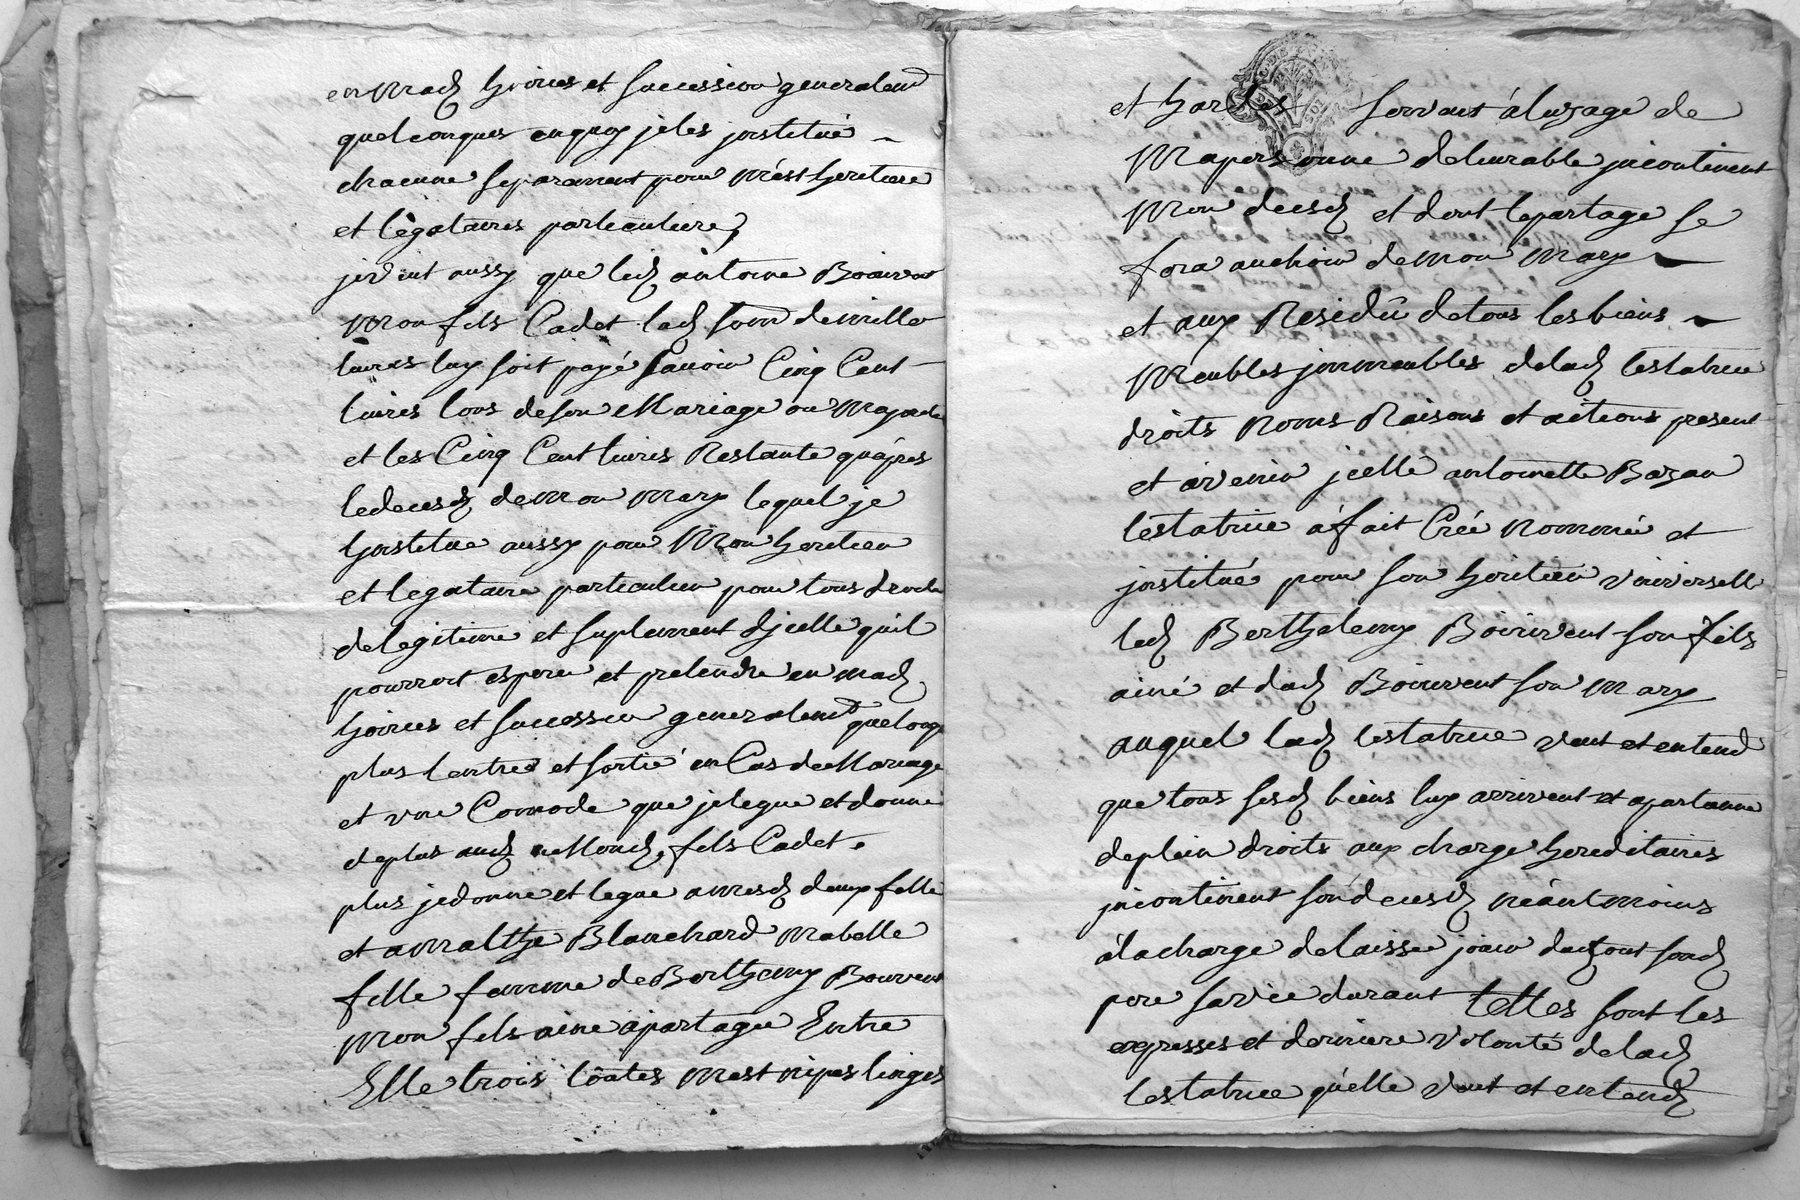 en mad hoiries et succession generalemt
quelconques enquoy je les institué
chacune separement pour mest heritiere
et légataires particuliere,
je veut aussy que led antoine Boiruvent
mon fils Cadet lad som de mille
livres luy soit payé sauoir Cinq Cent
livres lors de son Mariage ou majorite
et les Cinq Cent livres Restante qu'apres
le decesd de mon mary lequel je
institue aussy pour mon heritier
et legataire particulier pour tous droits
de legitime et suplement d'jcelle quil
pourroit esperer et pretendre en mad
hoiries et succession generalemt quelconq
plus lentree et sortie en Cas de Mariage
et une Comode que je legue et donne
de plus aud Mond fils Cadet.
plus je donne et legue a mesd deux fille
et a malthe Blanchard mabelle
fille femme de Berthemy Boiruvent
mon fils aine a partager Entre
Elle trois toutes mest nipes linges
et hardes servant à luzage de
ma personne deliurable jncontinent
mon decesd et dont le partage se
fera au choix de mon mary
et aux Residû de tous les biens
meubles jmmeubles de lad testatrice
droits noms Raisons et actions present
et avenir jcelle antoinette Bazan
testatrice à fait Créé nommé et
jnstitué pour son heritier vniverselle
led Berthelemy Boiruvent son fils
ainé et dud Boiruvent son mary
auquel lad testatrice veut et entend
que tous sesd biens luy arrivent et apartienne
de plein droits aux charge hereditaires
jncontinent son decesd néantmoins
à la charge de laisser jouir du tout sond
pere sa vie durant telles sont les
expresses et derniere volonté de lad
testatrice qu'elle veut et entend